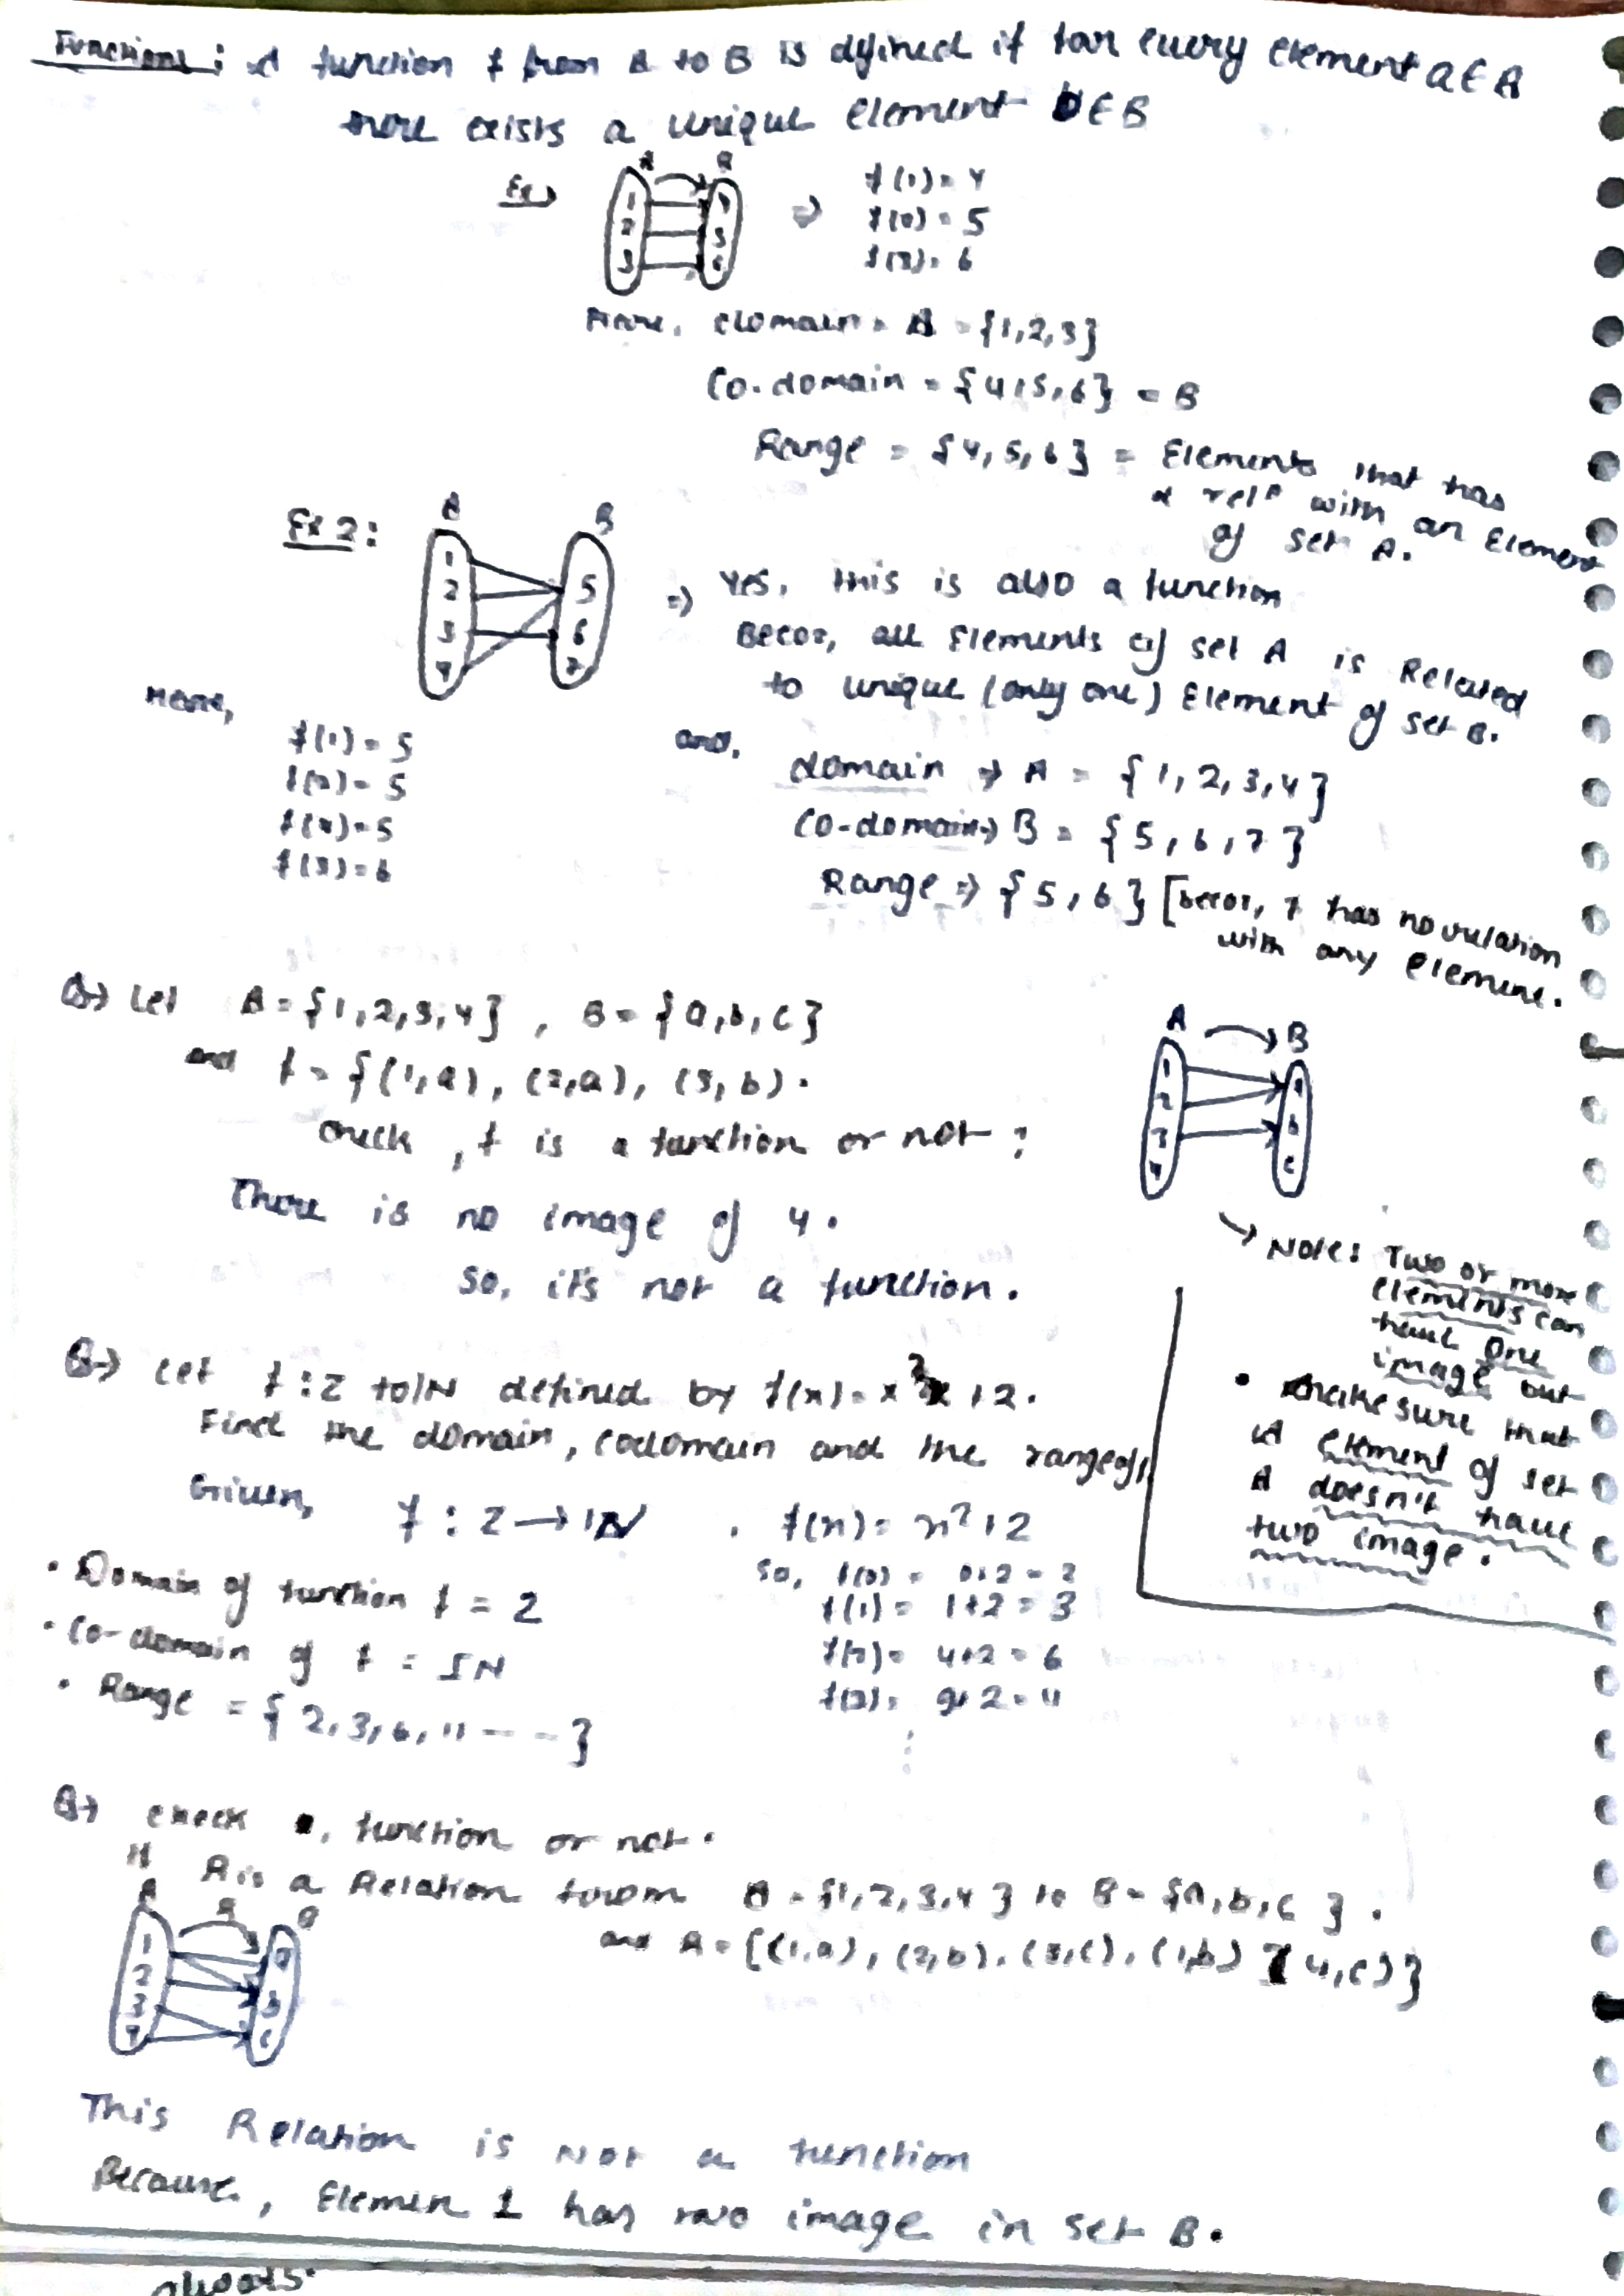 Functions: A function f from A to B is defined if for every element a ∈ A
there exists a unique element b ∈ B
Ex→
A B
1 4
2 5
3 6
⇒ f(1) = 4
f(2) = 5
f(3) = 6
Here, domain = A = {1,2,3}
Co-domain = {4,5,6} = B
Range = {4,5,6} = Elements that has
a relⁿ with an Element
of set A.
Ex 2:
A B
1
2 5
3 6
4 7
⇒ Yes, this is also a function
Becoz, all Elements of set A is Related
to unique (only one) Element of set B.
Here,
f(1) = 5
f(2) = 5
f(4) = 5
f(3) = 6
and,
domain → A = {1, 2, 3, 4}
Co-domain → B = {5, 6, 7}
Range ⇒ {5, 6} [becoz, 7 has no relation
with any element.
Q→ Let A = {1,2,3,4} , B = {a,b,c}
and f = {(1,a), (2,a), (3,b).
Check, f is a function or not ?
There is no image of 4.
So, it's not a function.
A B
1 a
2
3 b
4 c
→ Note: Two or more
Elements can
have One
image but
• make sure that
A element of set
A doesn't have
two image.
Q→ Let f : Z to IN defined by f(x) = x² + 2.
Find the domain, codomain and the range of f
Given, f : Z → IN , f(n) = n² + 2
So, f(0) = 0+2 = 2
f(1) = 1+2 = 3
f(2) = 4+2 = 6
f(3) = 9+2 = 11
• Domain of function f = Z
• Co-domain of f = IN
• Range = {2,3,6,11 - - -}
Q→ Check, function or not.
R is a Relation from A = {1,2,3,4} to B = {a,b,c}.
and R = {(1,a), (2,b), (3,c), (1,b) (4,c)}
A R B
1 a
2 b
3 c
4
This Relation is Not a function
Because, Elemen 1 has two image in set B.